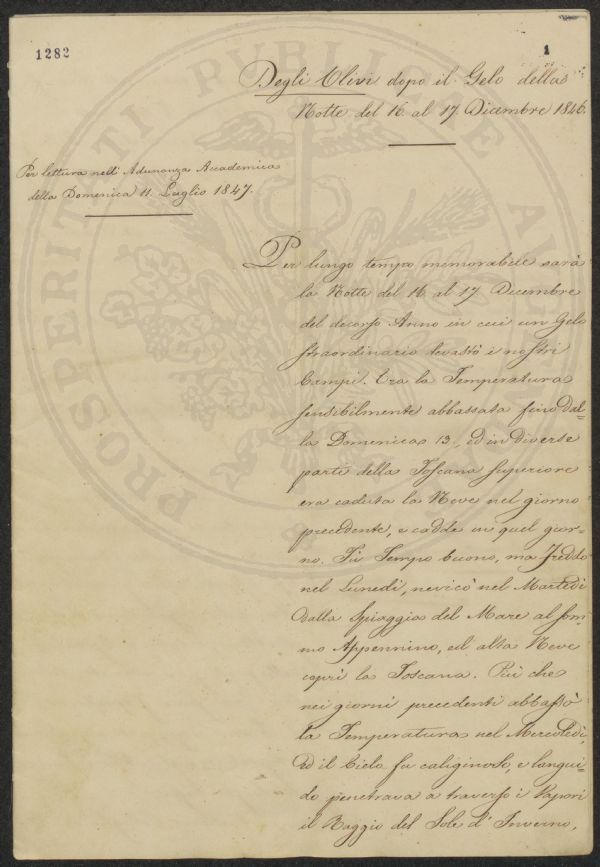 1282
1
Degli Ulivi dopo il Gelo della
Notte del 16. al 17. Dicembre 1846.
Per lettura nell' Adunanza Accademica
della Domenica 11. Luglio 1847.
Per lungo tempo memorabile sarà
la Notte del 16. al 17. Dicembre
del decorso Anno in cui un Gelo
straordinario devastò i nostri
Campi. Era la Temperatura
sensibilmente abbassata fino dal=
la Domenica 13., ed in diverse
parti della Toscana superiore
era caduta la Neve nel giorno
precedente, e cadde in quel gior-
no. Fù Tempo buono, ma freddo
nel Lunedì, nevicò nel Martedì
dalla Spiaggia del Mare al som=
mo Appennino, ed alta Neve
coprì la Toscana. Più che
nei giorni precedenti abbassò
la Temperatura nel Mercoledì,
ed il Cielo fu caliginoso, e langui=
do penetrava a traverso i Vapori
il Raggio del Sole d'Inverno,
PROSPERITATI PVBLICAE AV